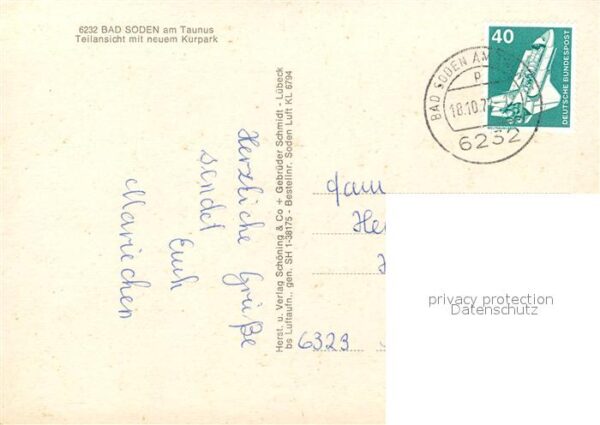 6232 BAD SODEN am Taunus
Teilansicht mit neuem Kurpark
40
DEUTSCHE BUNDESPOST
BAD SODEN AM
18.10.7
6232
Herzliche Grüße
sendet
Euch
Mariechen
Herst. u. Verlag Schöning & Co + Gebrüder Schmidt - Lübeck
bs Luftaufn., gen. SH 1-38175 - Bestellnr. Soden Luft KL 6794
6323
privacy protection
Datenschutz